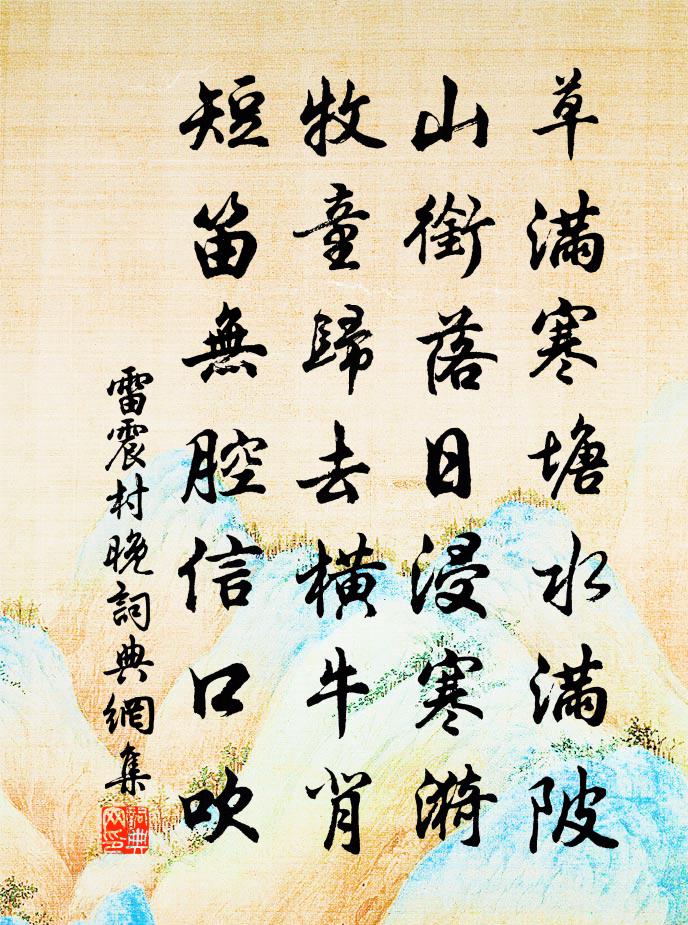 草滿寒塘水滿陂
山銜落日浸寒漪
牧童歸去橫牛背
短笛無腔信口吹
雷震村晚詞典網集
詞典网印